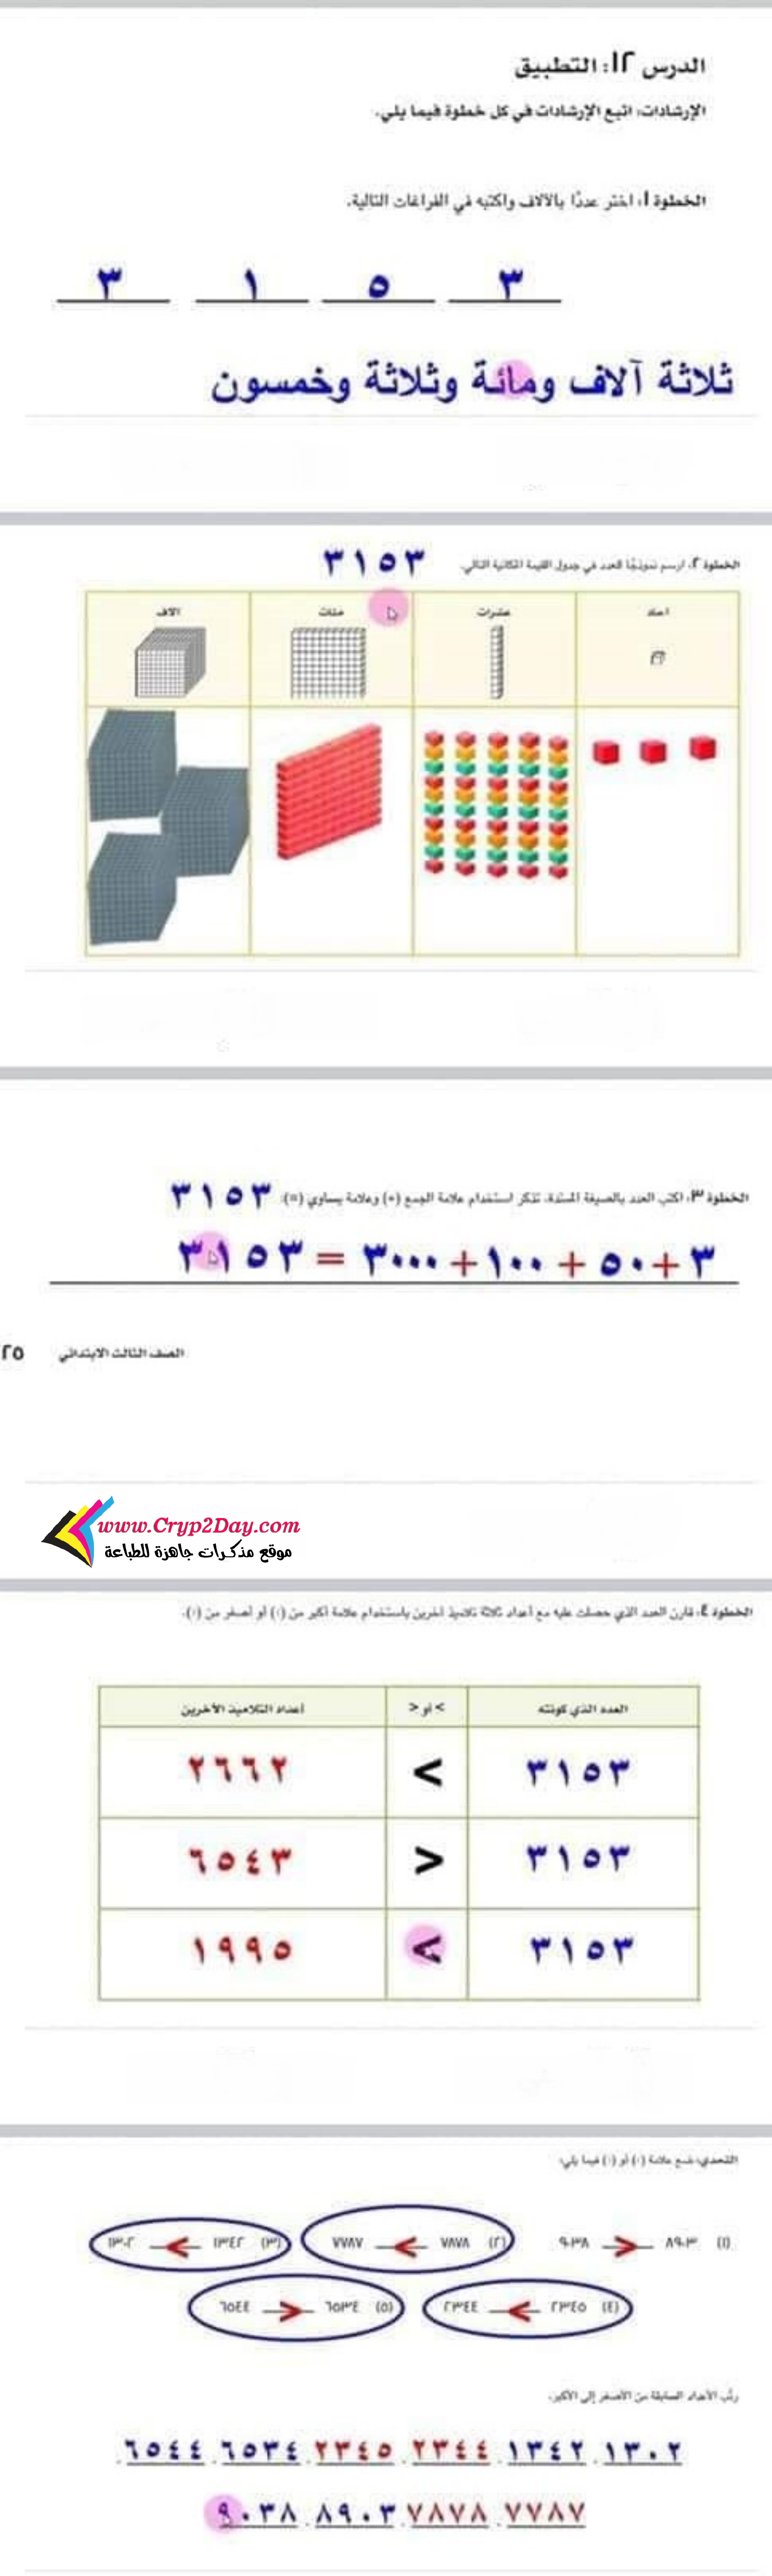 الدرس ١٢: التطبيق
الإرشادات: اتبع الإرشادات في كل خطوة فيما يلي.
الخطوة ١: اختر عددًا بالآلاف واكتبه في الفراغات التالية.
٣ ١ ٥ ٣
ثلاثة آلاف ومائة وثلاثة وخمسون
الخطوة ٢: ارسم نموذجًا للعدد في جدول القيمة المكانية التالي. ٣١٥٣
آحاد عشرات مئات آلاف
الخطوة ٣: اكتب العدد بالصيغة الممتدة. تذكر استخدام علامة الجمع (+) وعلامة يساوي (=): ٣١٥٣
٣١٥٣ = ٣٠٠٠ + ١٠٠ + ٥٠ + ٣
الصف الثالث الابتدائي ٢٥
www.Cryp2Day.com
موقع مذكرات جاهزة للطباعة
الخطوة ٤: قارن العدد الذي حصلت عليه مع أعداد ثلاثة تلاميذ آخرين باستخدام علامة أكبر من (>) أو أصغر من (<).
العدد الذي كونته > أو < أعداد التلاميذ الآخرين
٣١٥٣ < ٢٦٦٢
٣١٥٣ > ٦٥٤٣
٣١٥٣ < ١٩٩٥
التحدي: ضع علامة (>) أو (<) فيما يلي:
(١) ٨٩٠٣ > ٩٠٣٨ (٢) ٧٨٧٨ < ٧٧٨٧ (٣) ١٣٤٢ < ١٣٠٢
(٤) ٢٣٤٥ < ٢٣٤٤ (٥) ٦٥٣٤ > ٦٥٤٤
رتّب الأعداد السابقة من الأصغر إلى الأكبر.
١٣٠٢ . ١٣٤٢ . ٢٣٤٤ . ٢٣٤٥ . ٦٥٣٤ . ٦٥٤٤ .
٧٧٨٧ . ٧٨٧٨ . ٨٩٠٣ . ٩٠٣٨